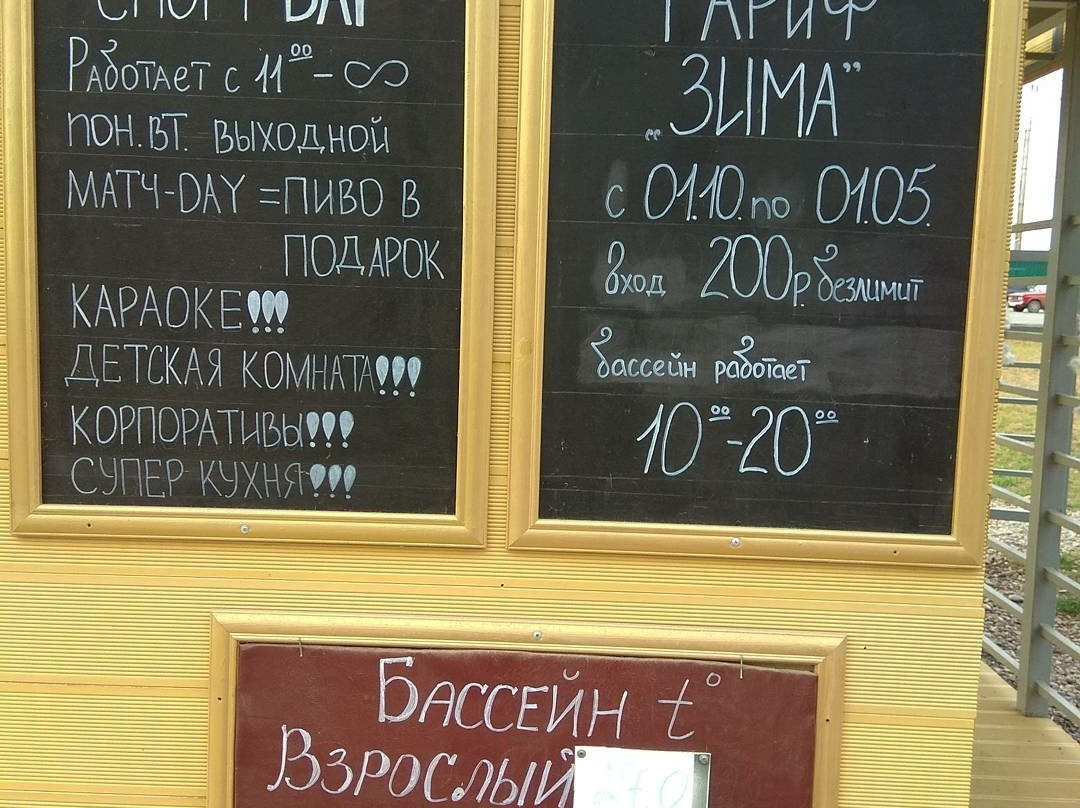 СПОРТ BAR
Работает с 11⁰⁰ – ∞
ПОН. ВТ. ВЫХОДНОЙ
МАТЧ-DAY = ПИВО В
ПОДАРОК
КАРАОКЕ!!!
ДЕТСКАЯ КОМНАТА!!!
КОРПОРАТИВЫ!!!
СУПЕР КУХНЯ!!!
ТАРИФ
„ЗИМА”
с 01.10. по 01.05.
вход 200р. безлимит
бассейн работает
10⁰⁰-20⁰⁰
БАССЕЙН t°
ВЗРОСЛЫЙ